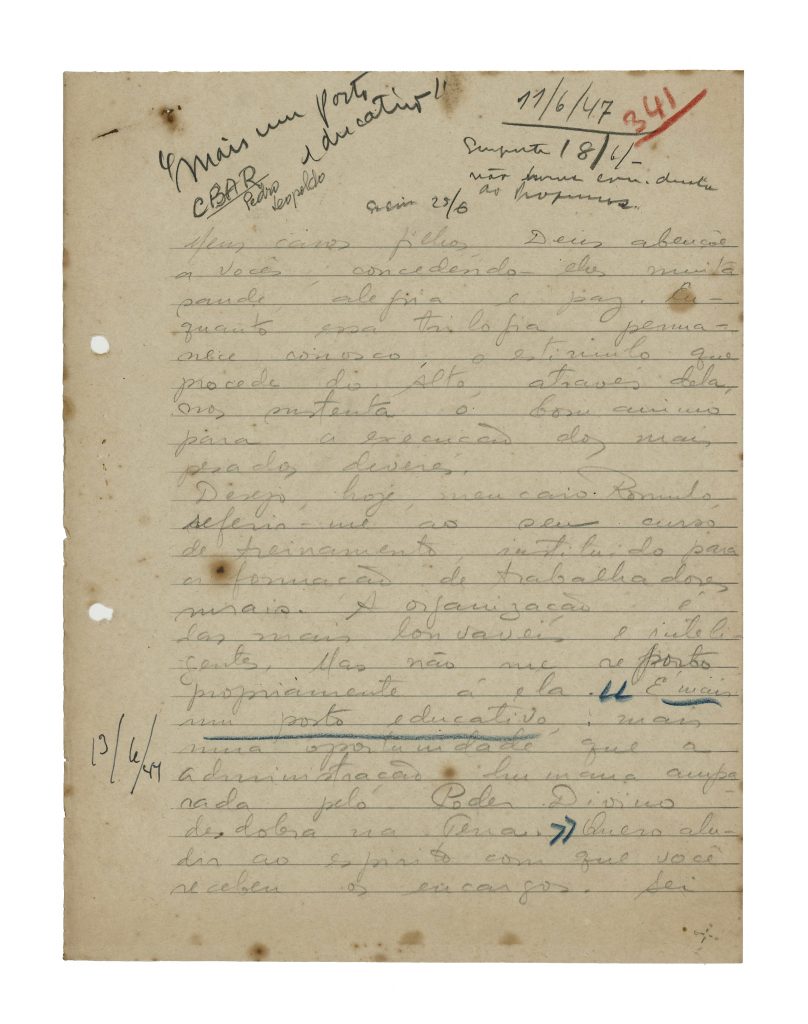 "Mais um porto
educativo"
CBAR
Pedro
Leopoldo
11/6/47
341
18/6/-
não houve
do
25/6
Meus caros filhos Deus abençoe
a vocês, concedendo-lhes muita
saude, alegria e paz. En-
quanto essa trilogia perma-
nece conosco, o estimulo que
procede do Alto, através dela,
nos sustenta o bom animo
para a execução dos mais
pesados deveres.
Desejo, hoje, meu caro Romulo
referir-me ao seu curso
de treinamento, instituido para
a formação de trabalhadores
rurais. A organização é
das mais louvaveis e inteli-
gentes. Mas não me reporto
propriamente á ela. " É mais
um porto educativo, mais
uma oportunidade que a
administração humana ampa
rada pelo Poder Divino
desdobra na Terra. " Quero alu-
dir ao espirito com que você
recebeu os encargos. Sei
13/6/47